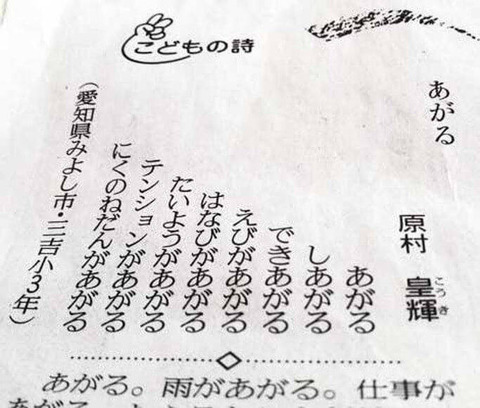 こどもの詩
あがる
原村 皇輝
こうき
あがる
しあがる
できあがる
えびがあがる
はなびがあがる
たいようがあがる
テンションがあがる
にくのねだんがあがる
（愛知県みよし市・三吉小3年）
あがる。雨があがる。仕事が